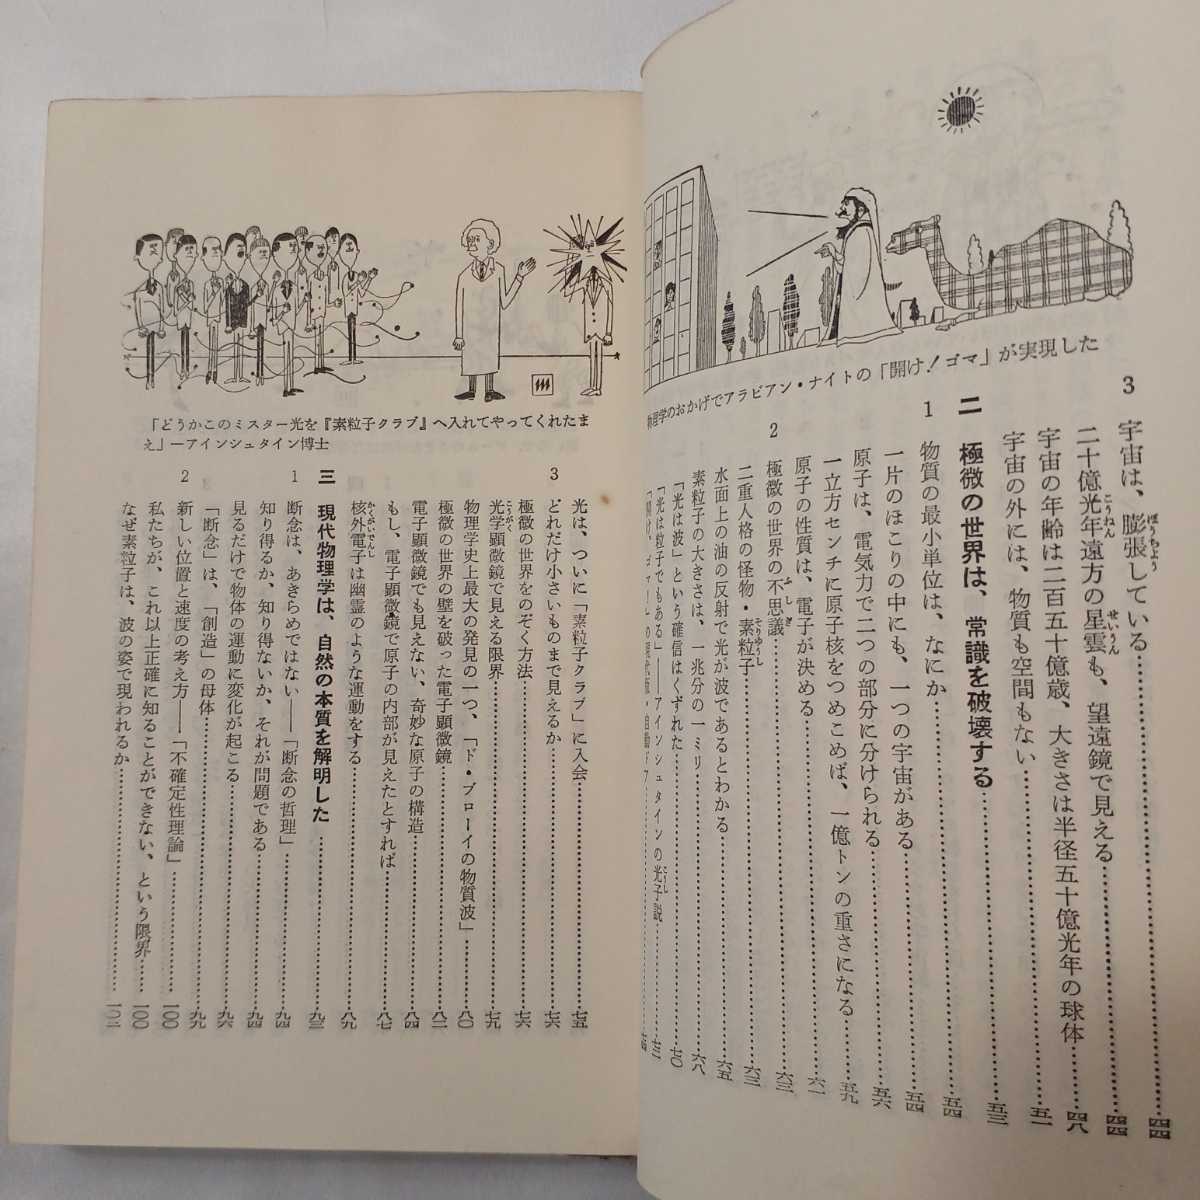 物理学のおかげでアラビアン・ナイトの「開け！ゴマ」が実現した
3 宇宙は、膨張している……四四
二十億光年遠方の星雲も、望遠鏡で見える……四四
宇宙の年齢は二百五十億歳、大きさは半径五十億光年の球体……四八
宇宙の外には、物質も空間もない……五一
二 極微の世界は、常識を破壊する……五三
1 物質の最小単位は、なにか……五四
一片のほこりの中にも、一つの宇宙がある……五四
原子は、電気力で二つの部分に分けられる……五六
一立方センチに原子核をつめこめば、一億トンの重さになる……五九
原子の性質は、電子が決める……六一
2 極微の世界の不思議……六三
二重人格の怪物・素粒子……六三
水面上の油の反射で光が波であるとわかる……六五
素粒子の大きさは、一兆分の一ミリ……六八
「光は波」という確信はくずれた……七〇
「光は粒子でもある」——アインシュタインの光子説……七三
「どうかこのミスター光を『素粒子クラブ』へ入れてやってくれたま
え」—アインシュタイン博士
光は、ついに「素粒子クラブ」に入会……七五
3 どれだけ小さいものまで見えるか……七六
極微の世界をのぞく方法……七六
光学顕微鏡で見える限界……七九
物理学史上最大の発見の一つ、「ド・ブローイの物質波」……八〇
極微の世界の壁を破った電子顕微鏡……八二
電子顕微鏡でも見えない、奇妙な原子の構造……八四
もし、電子顕微鏡で原子の内部が見えたとすれば……八七
核外電子は幽霊のような運動をする……八九
三 現代物理学は、自然の本質を解明した……九三
1 断念は、あきらめではない——「断念の哲理」……九四
知り得るか、知り得ないか、それが問題である……九四
見るだけで物体の運動に変化が起こる……九六
「断念」は、「創造」の母体……九九
2 新しい位置と速度の考え方——「不確定性理論」……一〇〇
私たちが、これ以上正確に知ることができない、という限界……一〇〇
なぜ素粒子は、波の姿で現われるか……一〇二